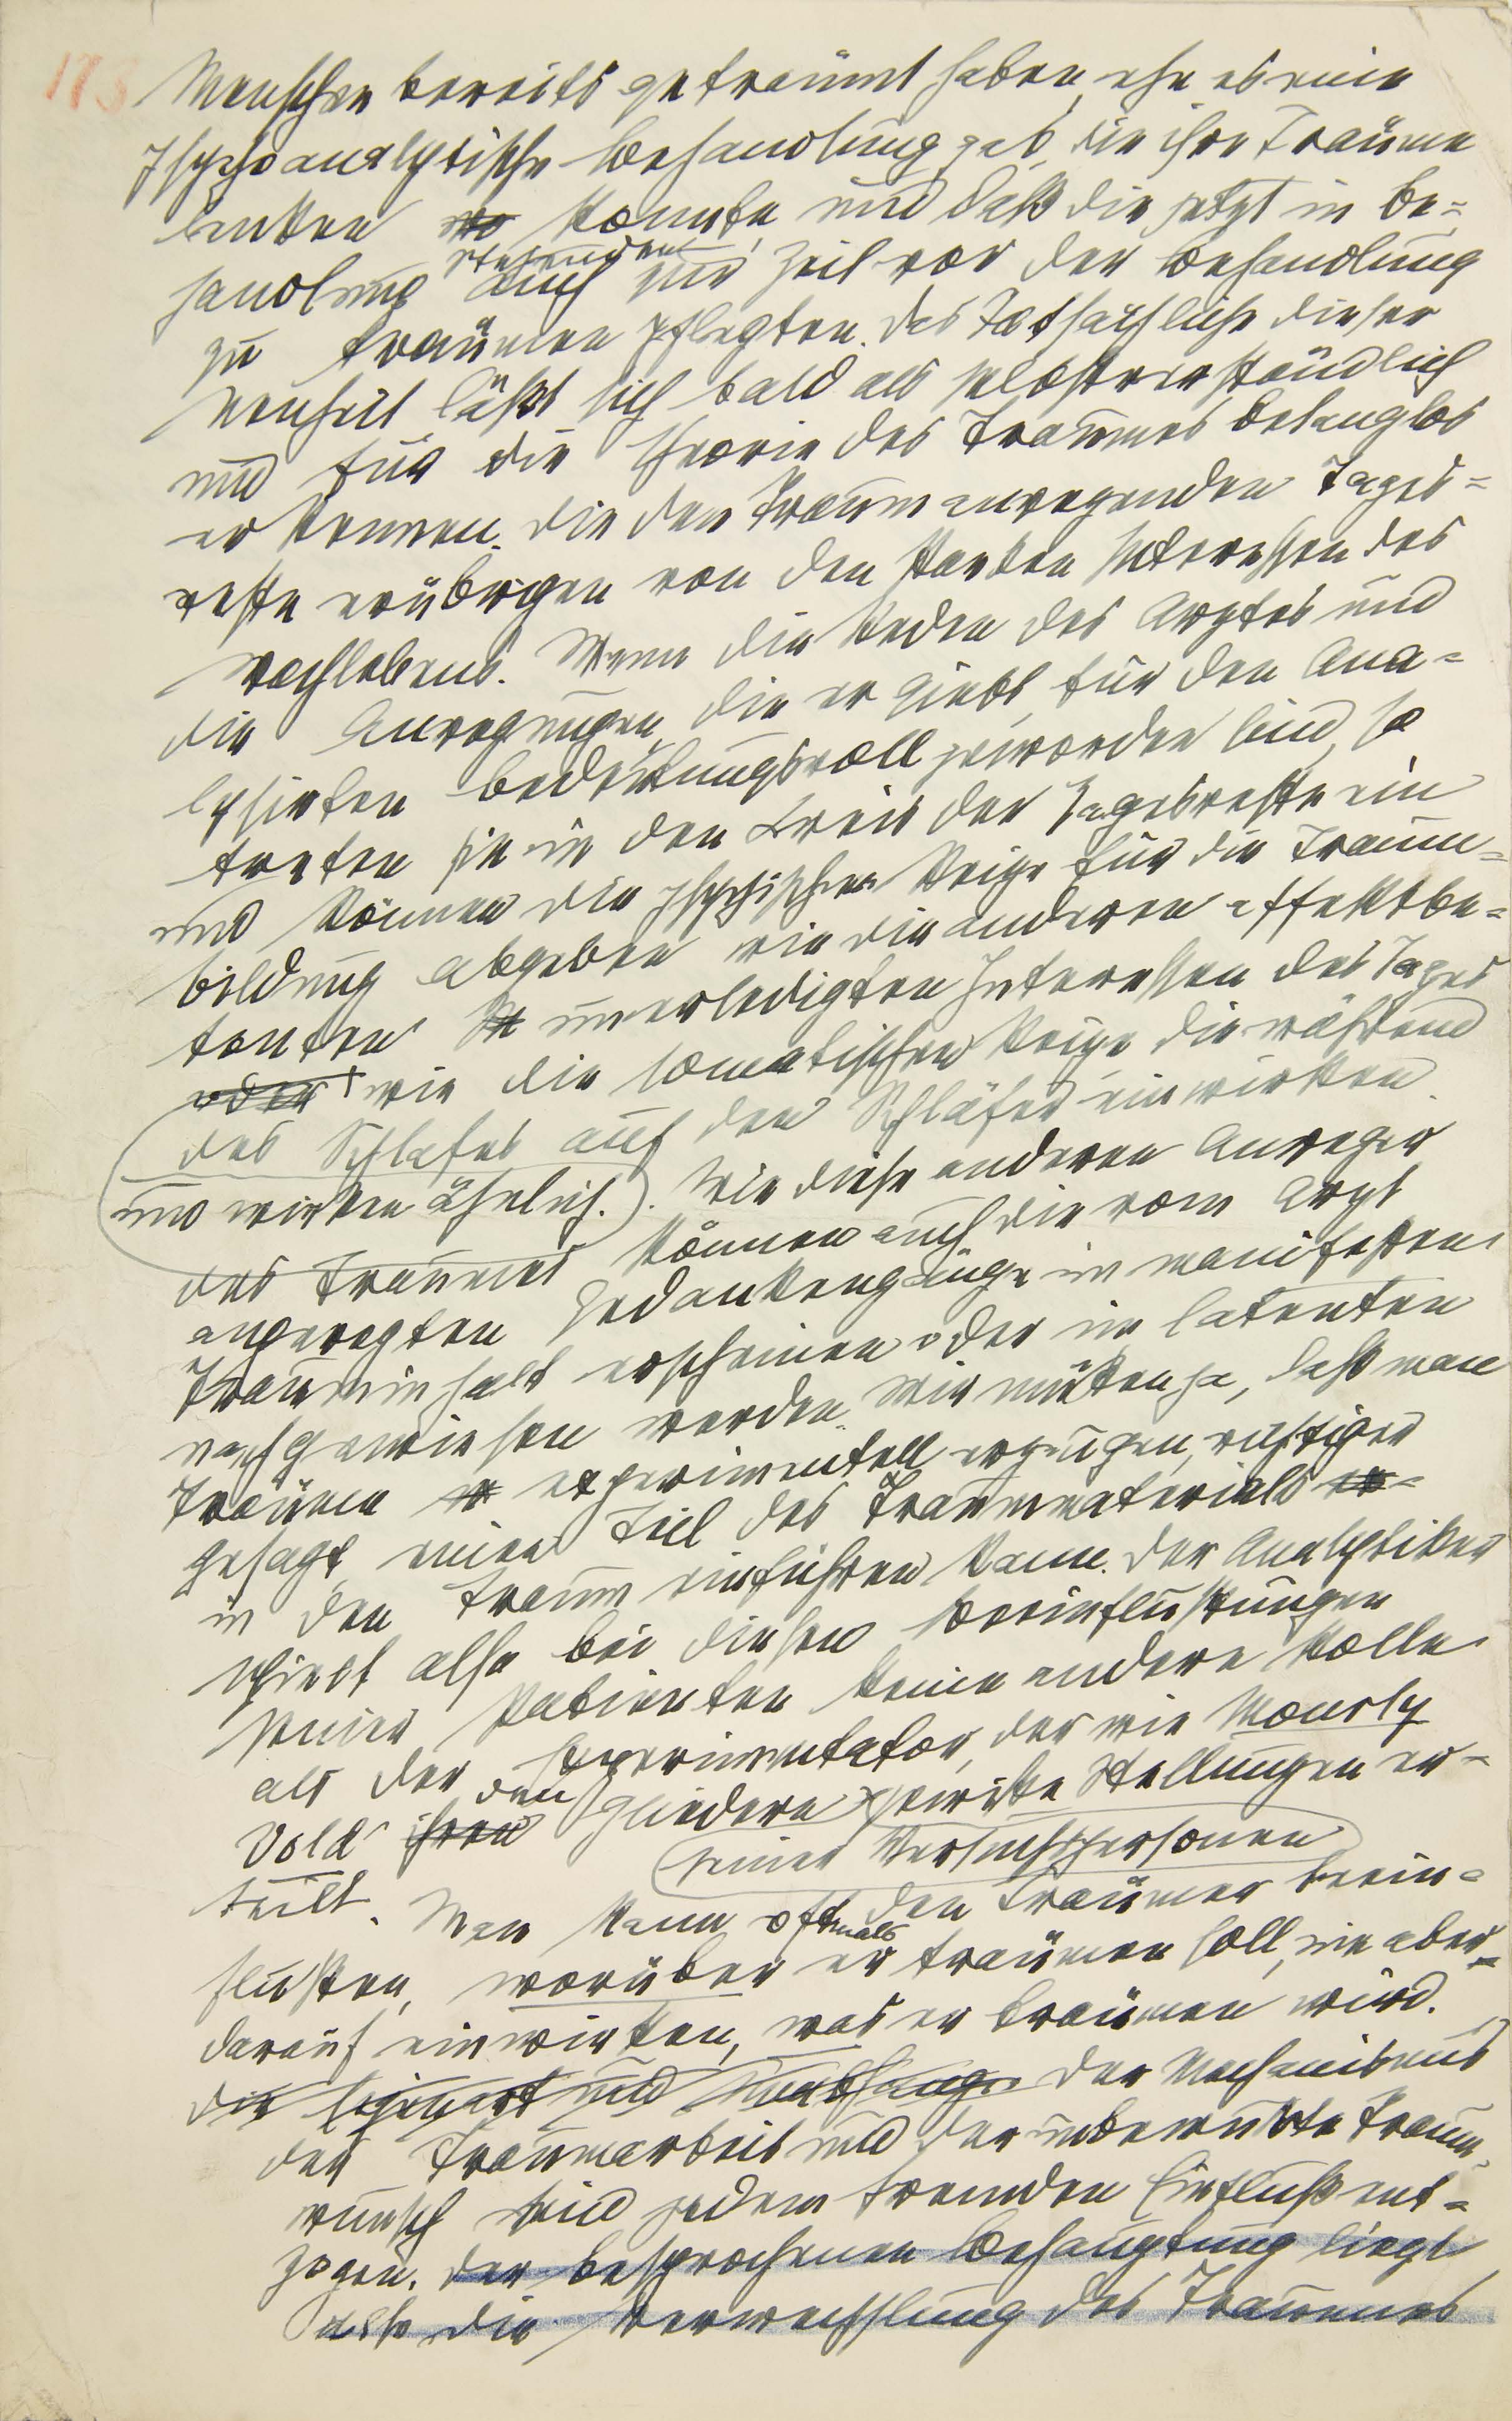 175
Menschen bereits geträumt haben, ehe es eine
psychoanalytische Behandlung gab, die ihre Träume
lenken konnte, und daß die jetzt in Be=
handlung stehenden auch zur Zeil vor der Behandlung
zu träumen pflegten. Das Tatsächliche dieser
Neuheit läßt sich bald als selbstverständlich
und für die Theorie des Traumes belanglos
erkennen. Die den Traum anregenden Tages=
reste erübrigen von den starken Interessen des
Wachlebens. Wenn die Reden des Arztes und
die Anregungen, die er giebt, für den Ana=
lysirten bedeutungsvoll geworden sind, so
treten sie in den Kreis der Tagesreste ein
und können die psychischen Reize für die Traum=
bildung abgeben wie die anderen affektbe=
tonten unerledigten Interessen des Tages
oder wie die somatischen Reize die während
des Schlafes auf den Schläfer einwirken.
und wirken ähnlich. Wie diese anderen Anreger
des Traumes können auch die vom Arzt
angeregten Gedankengänge im manifesten
Trauminhalt erscheinen oder im latenten
nachgewiesen werden. Wir wüßten ja, daß man
Träume experimentell erzeugen, richtiger
gesagt einen Teil des Traummaterials
in den Traum einführen kann. Der Analytiker
spielt also bei diesen Beeinflußungen
seiner Patienten keine andere Rolle
als der Experimentator, der wie Mourly
Vold ihren den Gliedern gewiße Stellungen er=
seiner Versuchspersonen
teilt. Man kann oftmals den Träumer beein=
flußen, worüber er träumen soll, nie aber
darauf einwirken, was er träumen wird.
die und Der Mechanismus
der Traumarbeit und der unbewußte Traum=
wunsch sind jedem fremden Einfluß ent=
zogen. Der besprochenen Behauptung liegt
also die Verwechslung des Traumes